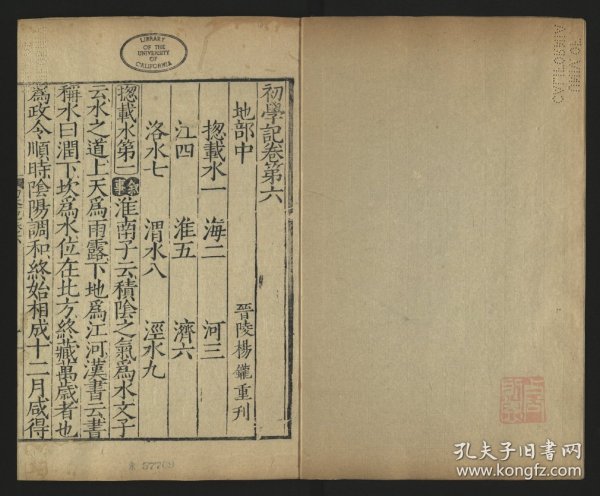 初學記卷第六
地部中
晉陵楊鑨重刊
揔載水一 海二 河三
江四 淮五 濟六
洛水七 渭水八 涇水九
揔載水第一 敘事 淮南子云積陰之氣爲水文子
云水之道上天爲雨露下地爲江河漢書云書
稱水曰潤下坎爲水位在北方終藏萬歲者也
爲政令順時陰陽調和終始相成十二月咸得
LIBRARY
OF THE
UNIVERSITY
OF
CALIFORNIA
57709
孔夫子旧书网
www.kongfz.com